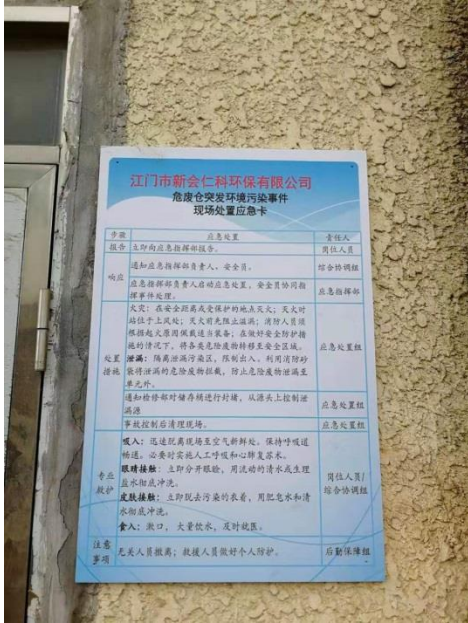 江门市新会仁科环保有限公司
危废仓突发环境污染事件
现场处置应急卡
步骤 应急处置 责任人
报告 立即向应急指挥部报告。 岗位人员
响应 通知应急指挥部负责人、安全员。 综合协调组
应急指挥部负责人启动应急处置，安全员协同指
挥事件处理。 应急指挥部
处置
措施
火灾：在安全距离或受保护的地点灭火；灭火时
站位于上风处；灭火前先阻止溢漏；消防人员须
根据起火原因佩戴适当装备；在做好安全防护措
施的情况下，将各类危险废物转移至安全区域。
泄漏：隔离泄漏污染区，限制出入，利用消防砂
袋将泄漏的危险废物拦截，防止危险废物泄漏至
单元外。
应急处置组
通知检修部对储存桶进行封堵，从源头上控制泄
漏源 应急处置组
事故控制后清理现场。 应急处置组
专业
救护
吸入：迅速脱离现场至空气新鲜处。保持呼吸道
畅通。必要时实施人工呼吸和心肺复苏术。
眼睛接触：立即分开眼睑，用流动的清水或生理
盐水彻底冲洗。
皮肤接触：立即脱去污染的衣着，用肥皂水和清
水彻底冲洗。
食入：漱口，大量饮水，及时就医。
岗位人员/
综合协调组
注意
事项 无关人员撤离；救援人员做好个人防护。 后勤保障组